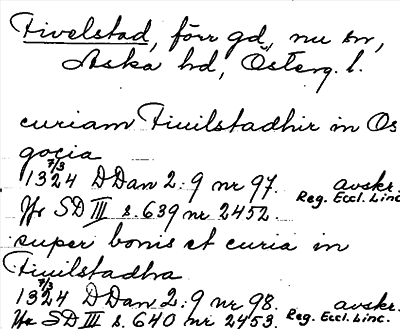 Fivelstad, förr gd, nu sn,
Aska hd, Österg. l.
curiam Fiuilstadhir in Os
gocia
7/3
1324 DDan 2:9 nr 97. avskr.
Jfr SD III s. 639 nr 2452. Reg. Eccl. Linc.
super bonis et curia in
Fiuilstadha
7/3
1324 DDan 2:9 nr 98. avskr.
Jfr SD III s. 640 nr 2453. Reg. Eccl. Linc.